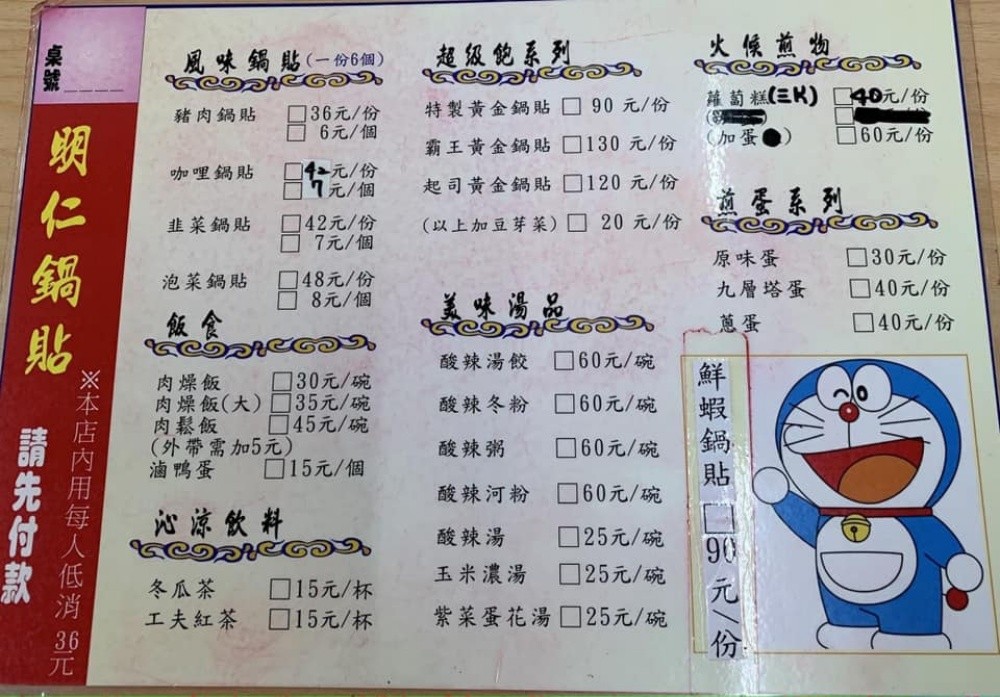 桌號____
明仁鍋貼
※本店內用每人低消36元
請先付款
風味鍋貼(一份6個)
豬肉鍋貼 □36元/份
□ 6元/個
咖哩鍋貼 □42元/份
□ 7元/個
韭菜鍋貼 □42元/份
□ 7元/個
泡菜鍋貼 □48元/份
□ 8元/個
飯食
肉燥飯 □30元/碗
肉燥飯(大) □35元/碗
肉鬆飯 □45元/碗
(外帶需加5元)
滷鴨蛋 □15元/個
沁涼飲料
冬瓜茶 □15元/杯
工夫紅茶 □15元/杯
超级飽系列
特製黃金鍋貼 □ 90 元/份
霸王黃金鍋貼 □130 元/份
起司黃金鍋貼 □120 元/份
(以上加豆芽菜) □ 20 元/份
美味湯品
酸辣湯餃 □60元/碗
酸辣冬粉 □60元/碗
酸辣粥 □60元/碗
酸辣河粉 □60元/碗
酸辣湯 □25元/碗
玉米濃湯 □25元/碗
紫菜蛋花湯 □25元/碗
火候煎物
蘿蔔糕(三片) □40元/份
(加蛋) □60元/份
煎蛋系列
原味蛋 □30元/份
九層塔蛋 □40元/份
蔥蛋 □40元/份
鮮蝦鍋貼 □90元/份